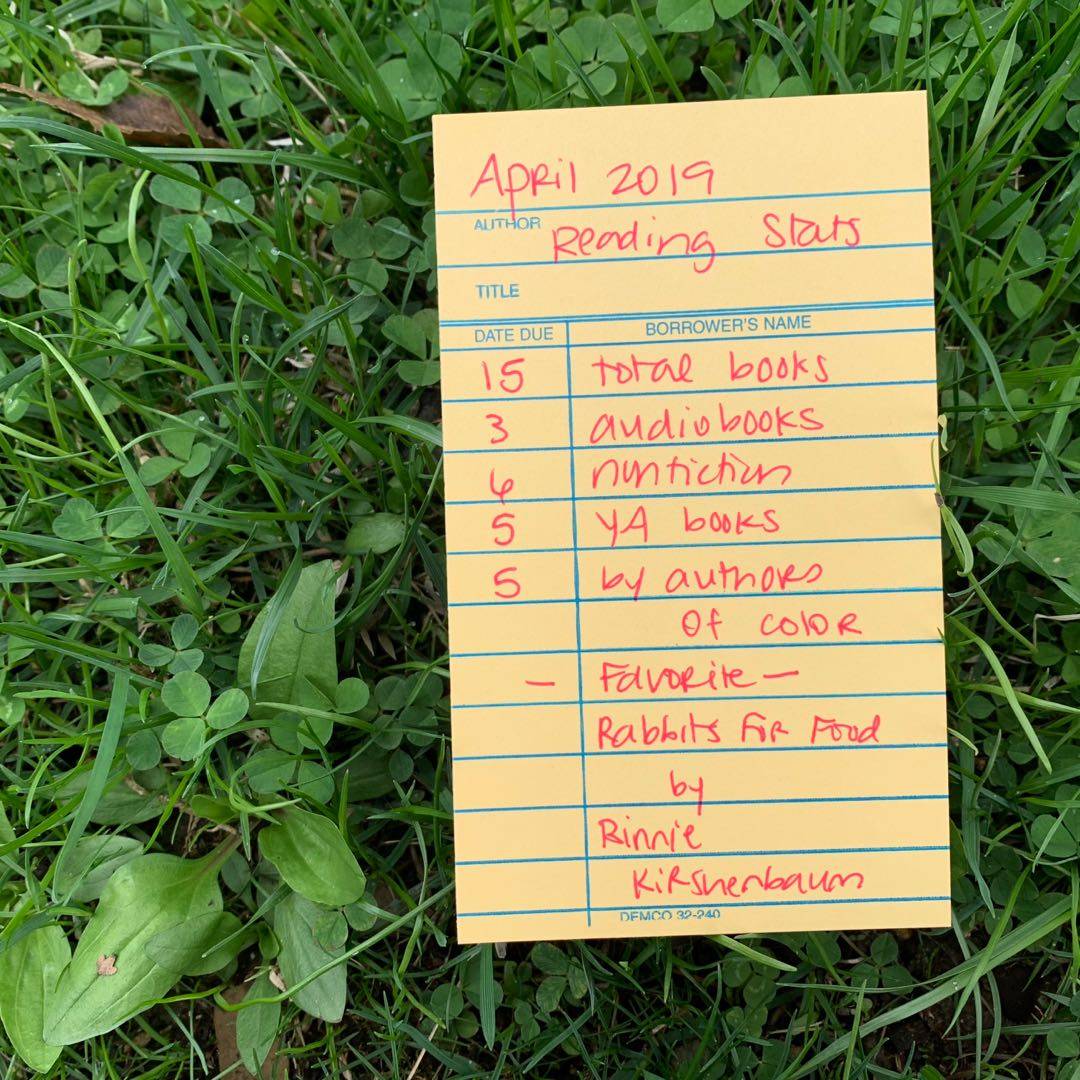 April 2019
AUTHOR Reading Stats
TITLE
DATE DUE BORROWER'S NAME
15 total books
3 audiobooks
6 nonfiction
5 YA books
5 by authors
of color
- Favorite -
Rabbits for Food
by
Binnie
Kirshenbaum
DEMCO 32-240